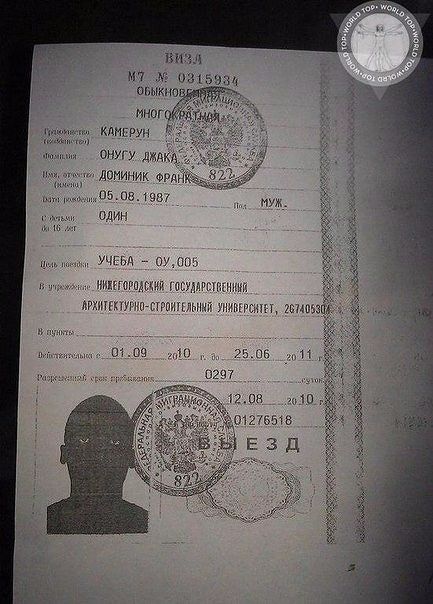 ВИЗА
М7 № 0315934
ОБЫКНОВЕННАЯ
МНОГОКРАТНАЯ
Гражданство (подданство) КАМЕРУН
Фамилия ОНУГУ ДЖАКА
Имя, отчество (имена) ДОМИНИК ФРАНК
Дата рождения 05.08.1987 Пол МУЖ.
С детьми до 16 лет ОДИН
Цель поездки УЧЕБА – ОУ,005
В учреждение НИЖЕГОРОДСКИЙ ГОСУДАРСТВЕННЫЙ
АРХИТЕКТУРНО-СТРОИТЕЛЬНЫЙ УНИВЕРСИТЕТ, 267405304
В пункты
Действительна с 01.09 2010 г. до 25.06 2011 г.
Разрешенный срок пребывания 0297 суток
12.08 2010 г.
01276518
ВЫЕЗД
ФЕДЕРАЛЬНАЯ МИГРАЦИОННАЯ СЛУЖБА
822
ФЕДЕРАЛЬНАЯ МИГРАЦИОННАЯ СЛУЖБА
822
WORLD TOP